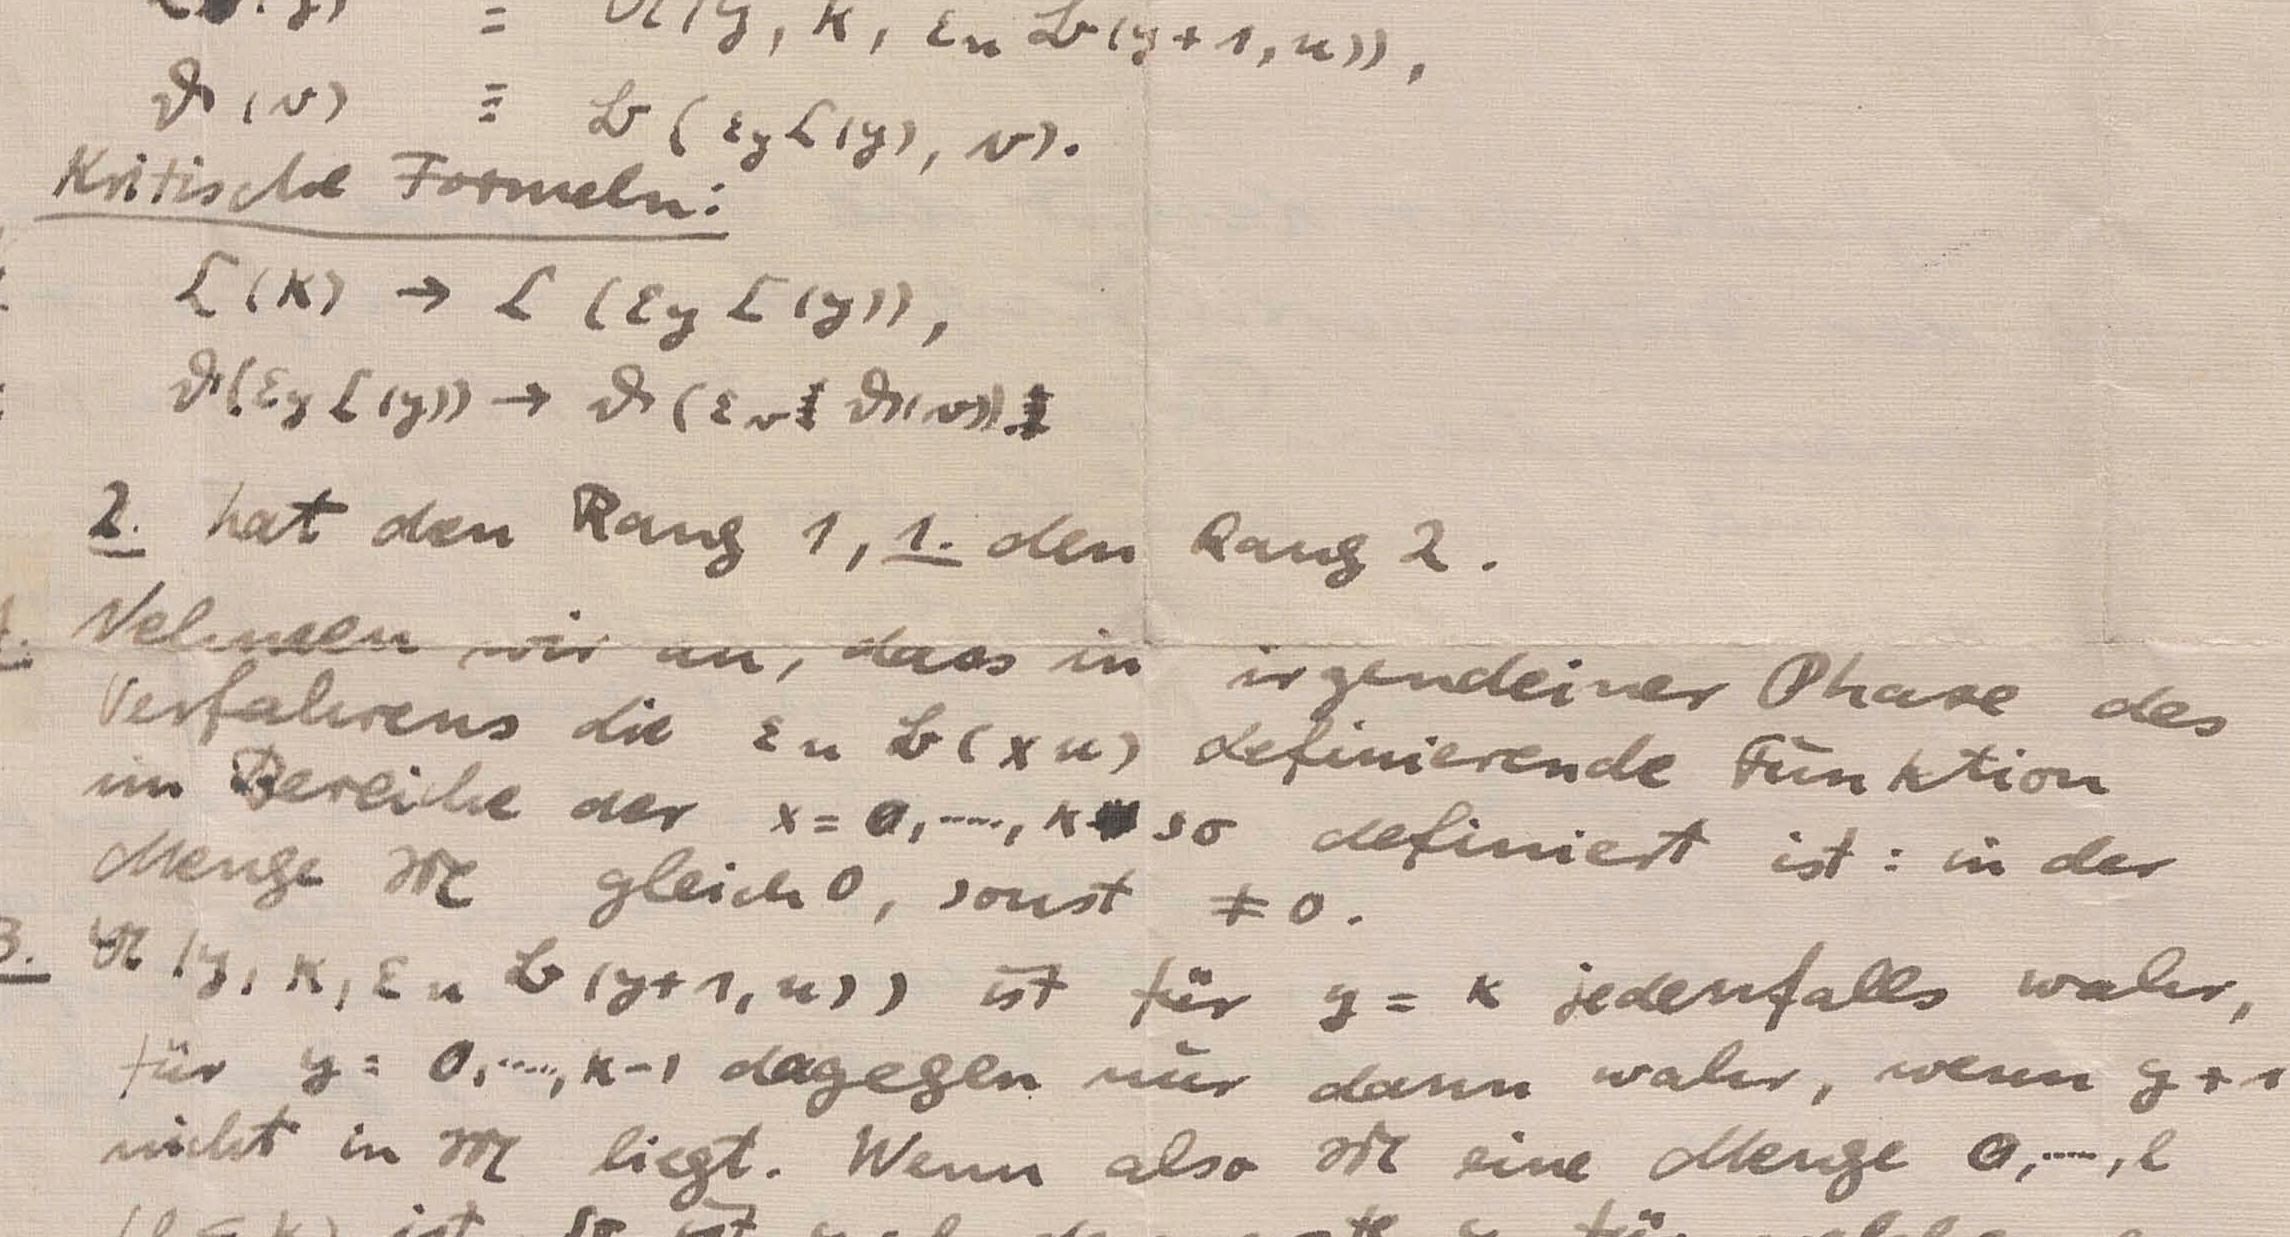 ≡ 𝔄(y, k, εu 𝔅(y+1, u)),
𝔇(v) ≡ 𝔅(εy ℭ(y), v).
Kritische Formeln:
ℭ(k) → ℭ(εy ℭ(y)),
𝔇(εy ℭ(y)) → 𝔇(εv 𝔇(v)).
2. hat den Rang 1, 1. den Rang 2.
Nehmen wir an, dass in irgendeiner Phase des
Verfahrens die εu 𝔅(x u) definierende Funktion
im Bereiche der x = 0,....., k so definiert ist: in der
Menge 𝔐 gleich 0, sonst ≠ 0.
3. 𝔄(y, k, εu 𝔅(y+1, u)) ist für y = k jedenfalls wahr,
für y = 0,....., k-1 dagegen nur dann wahr, wenn y+1
nicht in 𝔐 liegt. Wenn also 𝔐 eine Menge 0,....., l
ist, so ist